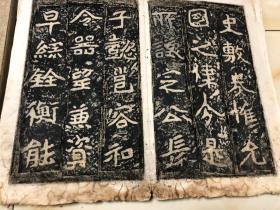 史敷恭惟允
國之儁今是
所談之公長
子懿邕容和
令器望兼資
早綜銓衡能